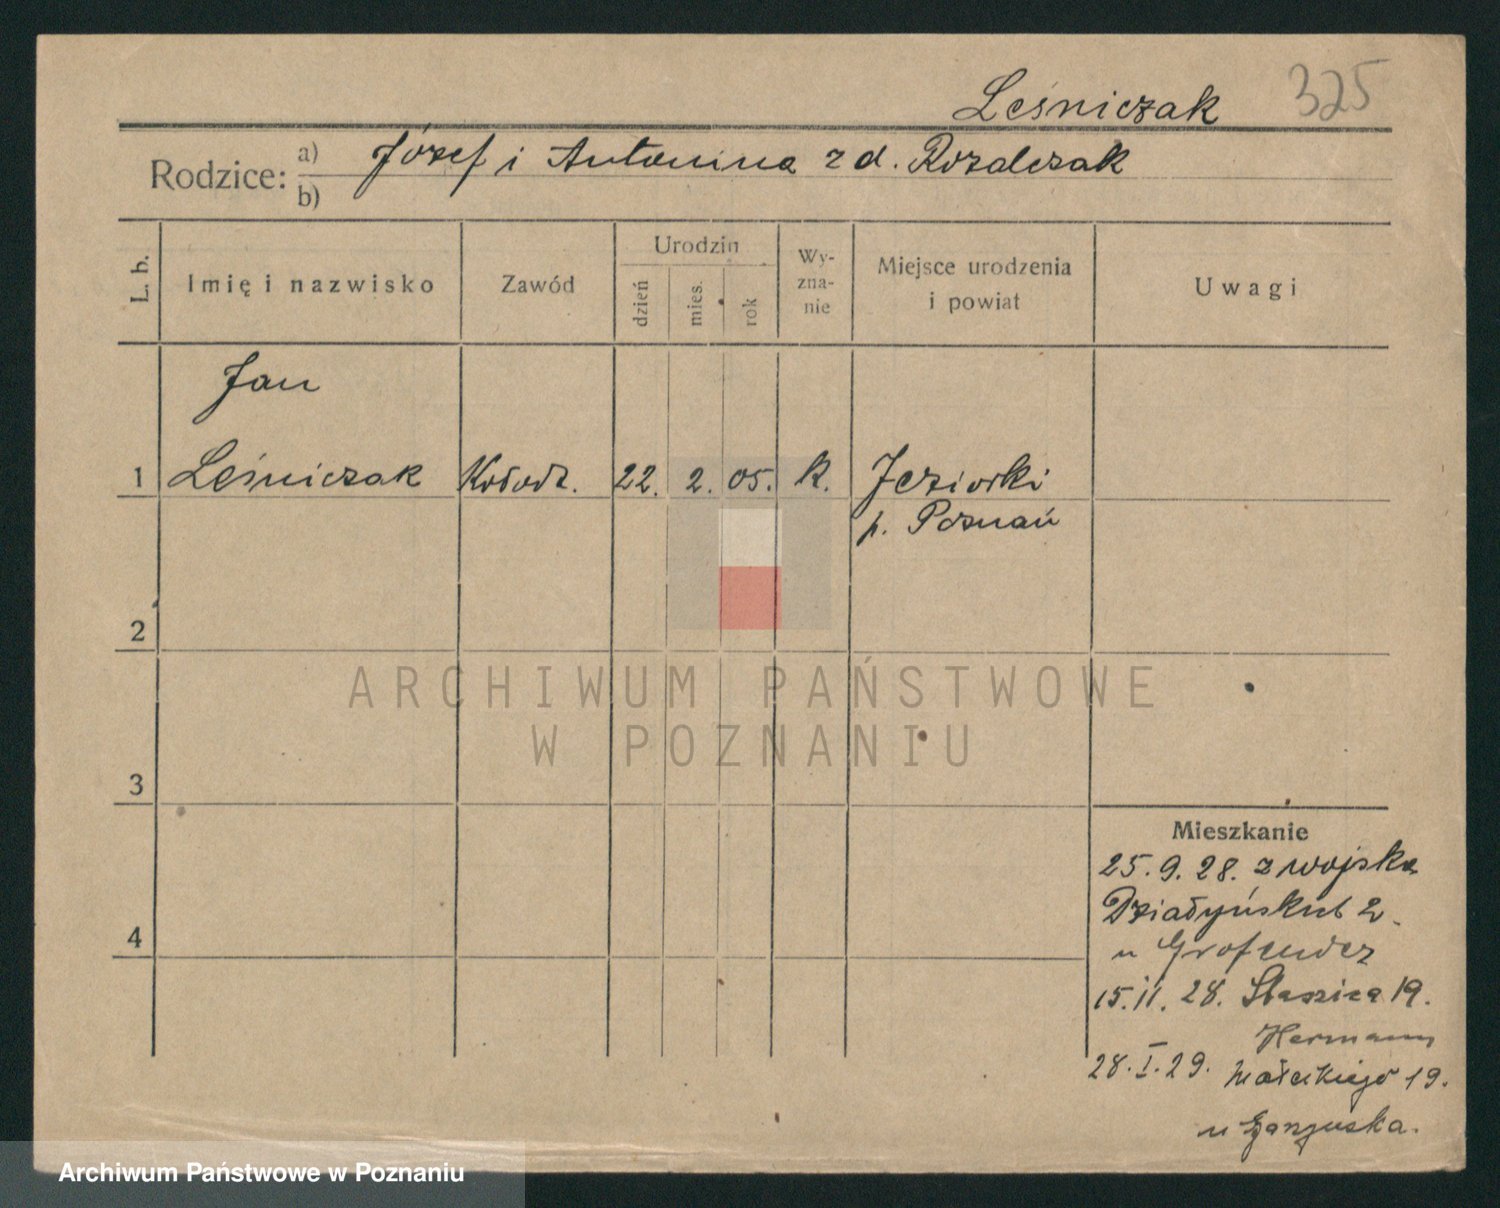 Leśniczak 325
Rodzice: a) Józef i Antonina z d. Rozalczak
b)
L. b. Imię i nazwisko Zawód Urodzin dzień mies. rok Wyznanie Miejsce urodzenia i powiat Uwagi
Jan
1 Leśniczak Kołodz. 22. 2. 05. k. Jeziorki
p. Poznań
2
ARCHIWUM PAŃSTWOWE
W POZNANIU
3
Mieszkanie
25.9.28. z wojska
Działyńskich 2.
4
u
15.11.28. Staszica 19.
Hermann
28.I.29. Małeckiego 19.
u
Archiwum Państwowe w Poznaniu